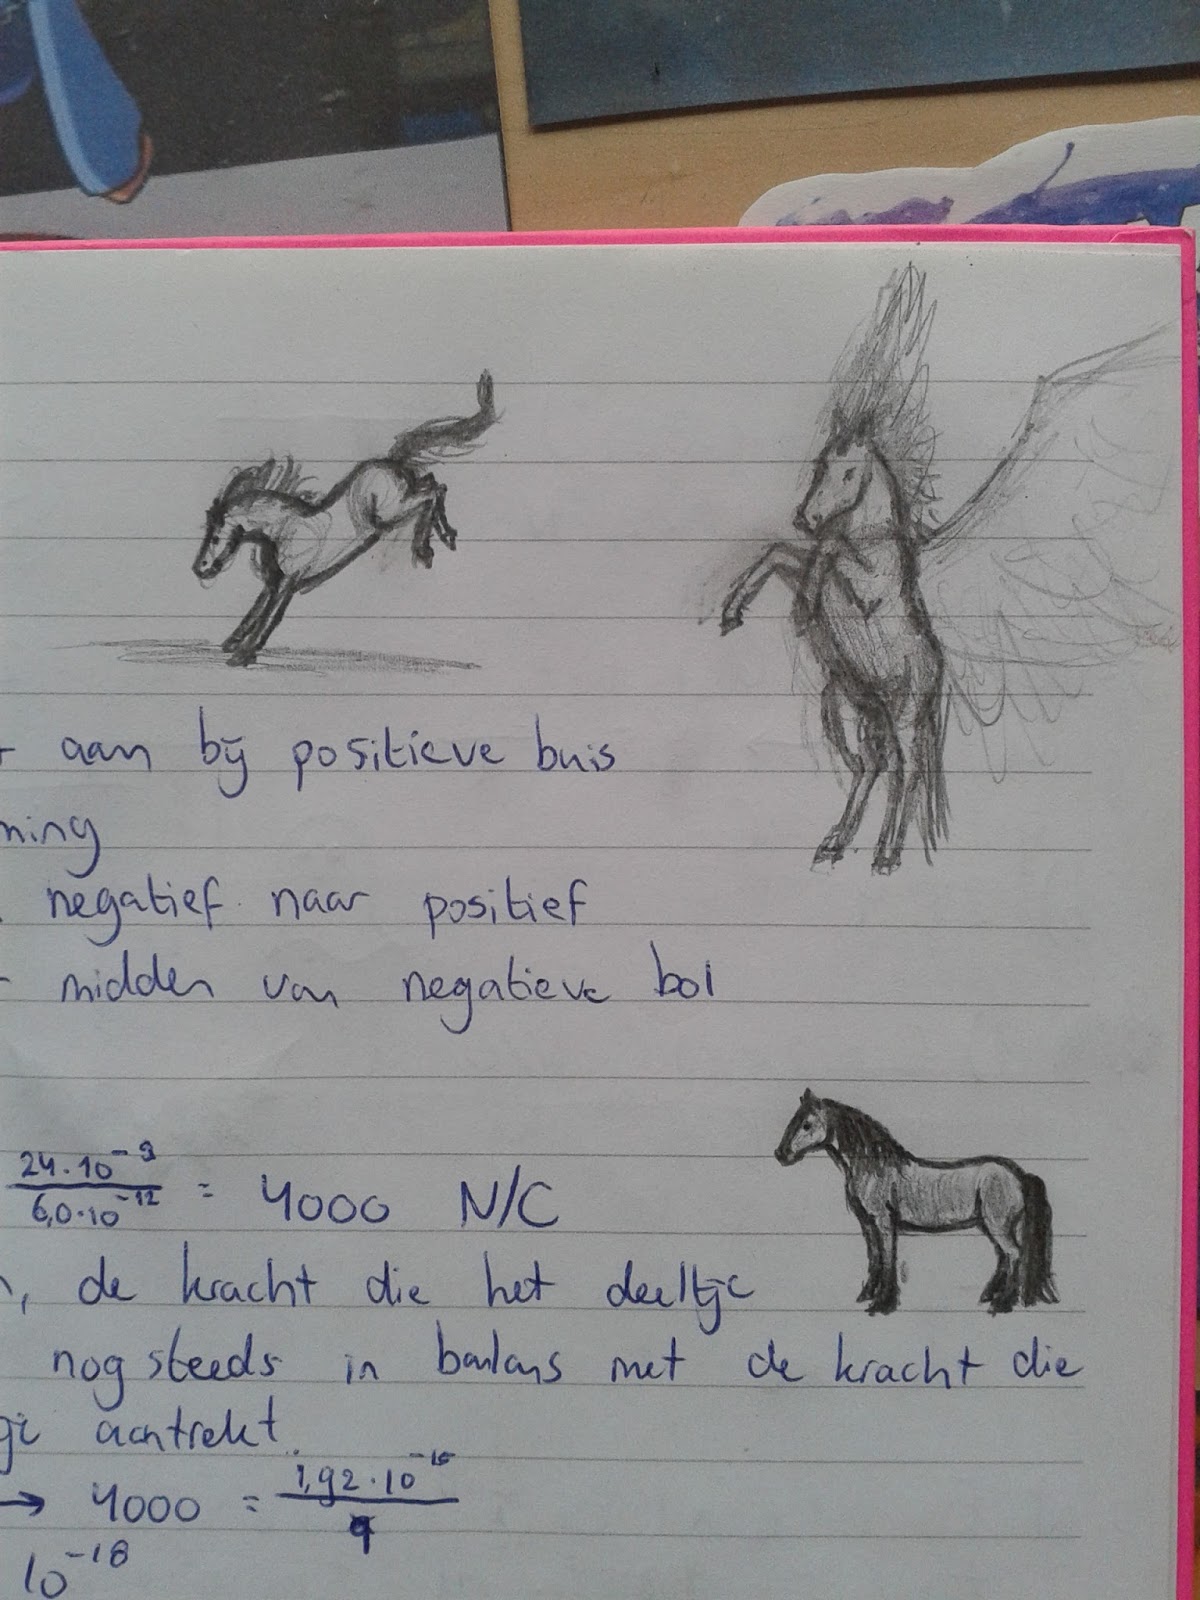 aan bij positieve buis
ning
negatief naar positief
midden van negatieve bol
24·10⁻⁹ / 6,0·10⁻¹² = 4000 N/C
, de kracht die het deeltje
nog steeds in balans met de kracht die
aantrekt.
→ 4000 = 1,92·10⁻¹⁵ / q
10⁻¹⁸